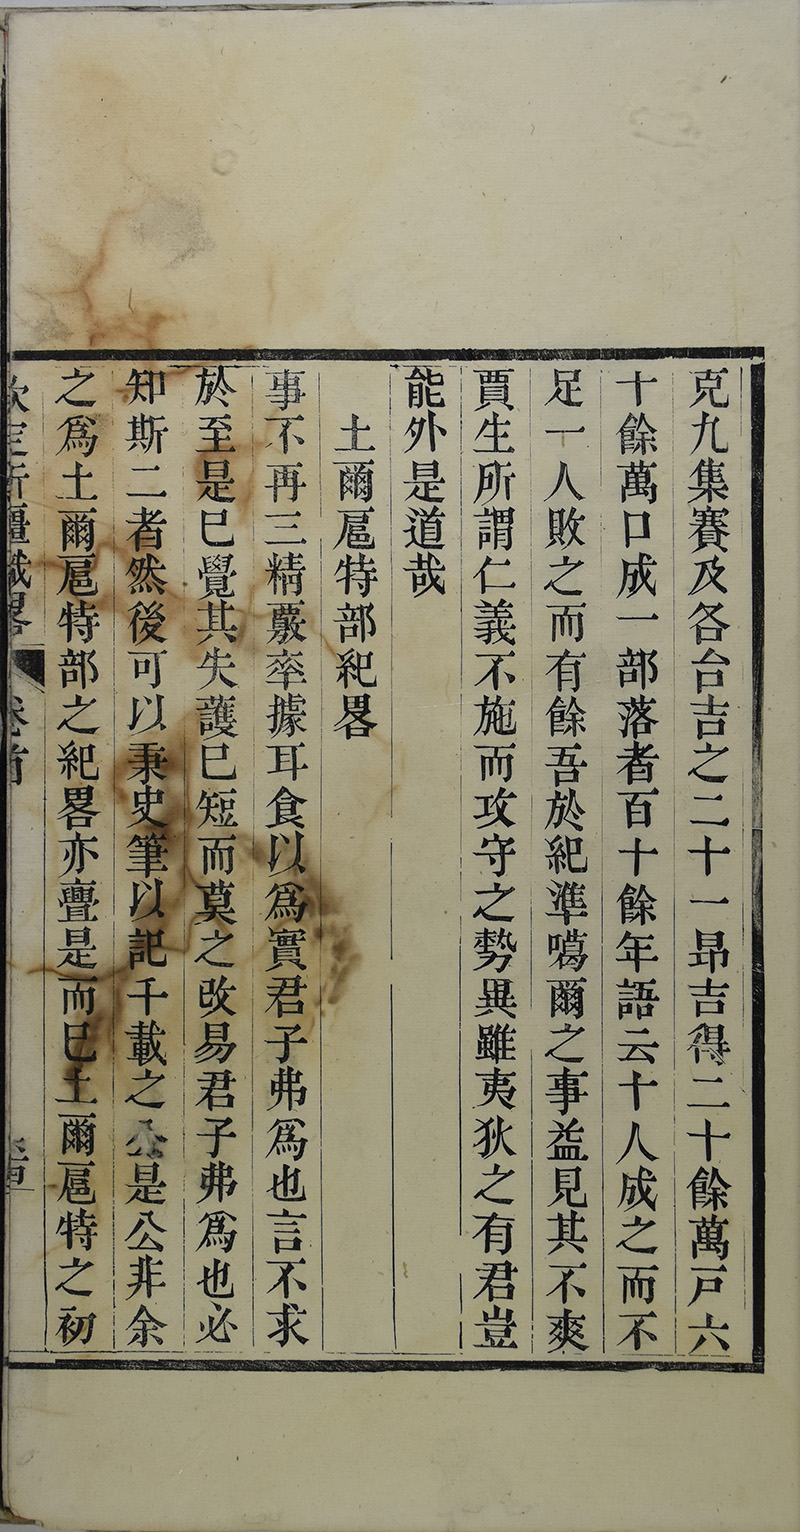 克九集賽及各台吉之二十一昻吉得二十餘萬戸六
十餘萬口成一部落者百十餘年語云十人成之而不
足一人敗之而有餘吾於紀準噶爾之事益見其不爽
賈生所謂仁義不施而攻守之勢異雖夷狄之有君豈
能外是道哉
土爾扈特部紀畧
事不再三精覈率據耳食以爲實君子弗爲也言不求
於至是已覺其失護已短而莫之改易君子弗爲也必
知斯二者然後可以秉史筆以記千載之公是公非余
之爲土爾扈特部之紀畧亦亹是而已土爾扈特之初
欽定新疆識畧 卷首